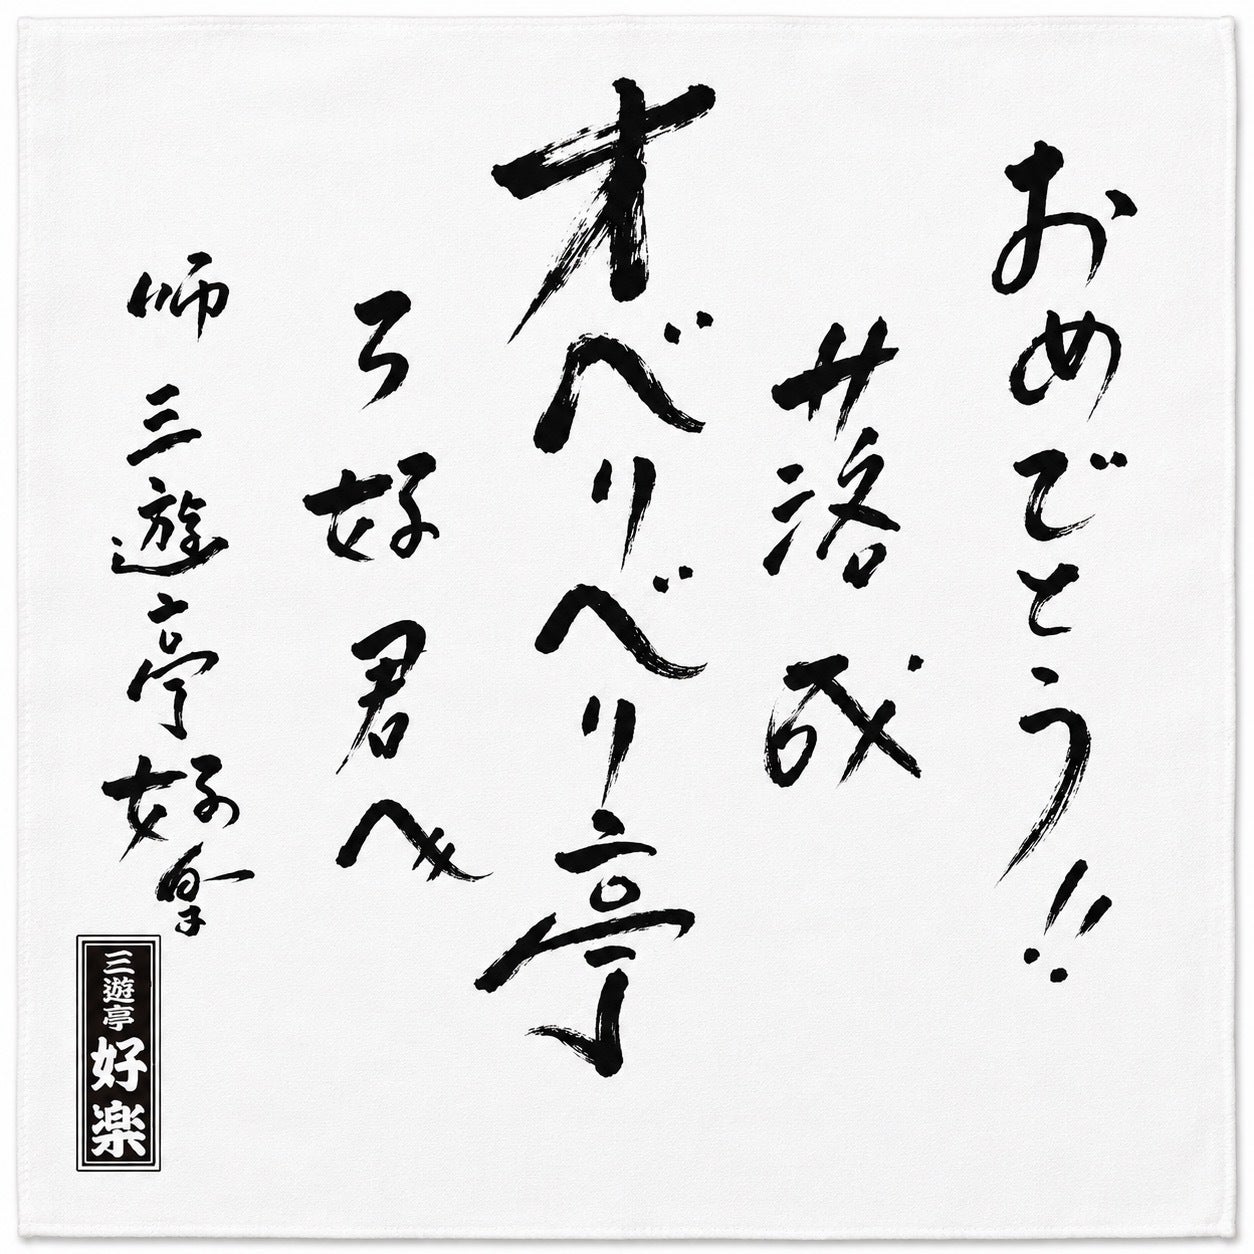 おめでとう!!
落成
オベリベリ亭
ろ好君へ
師 三遊亭好楽
三遊亭
好楽